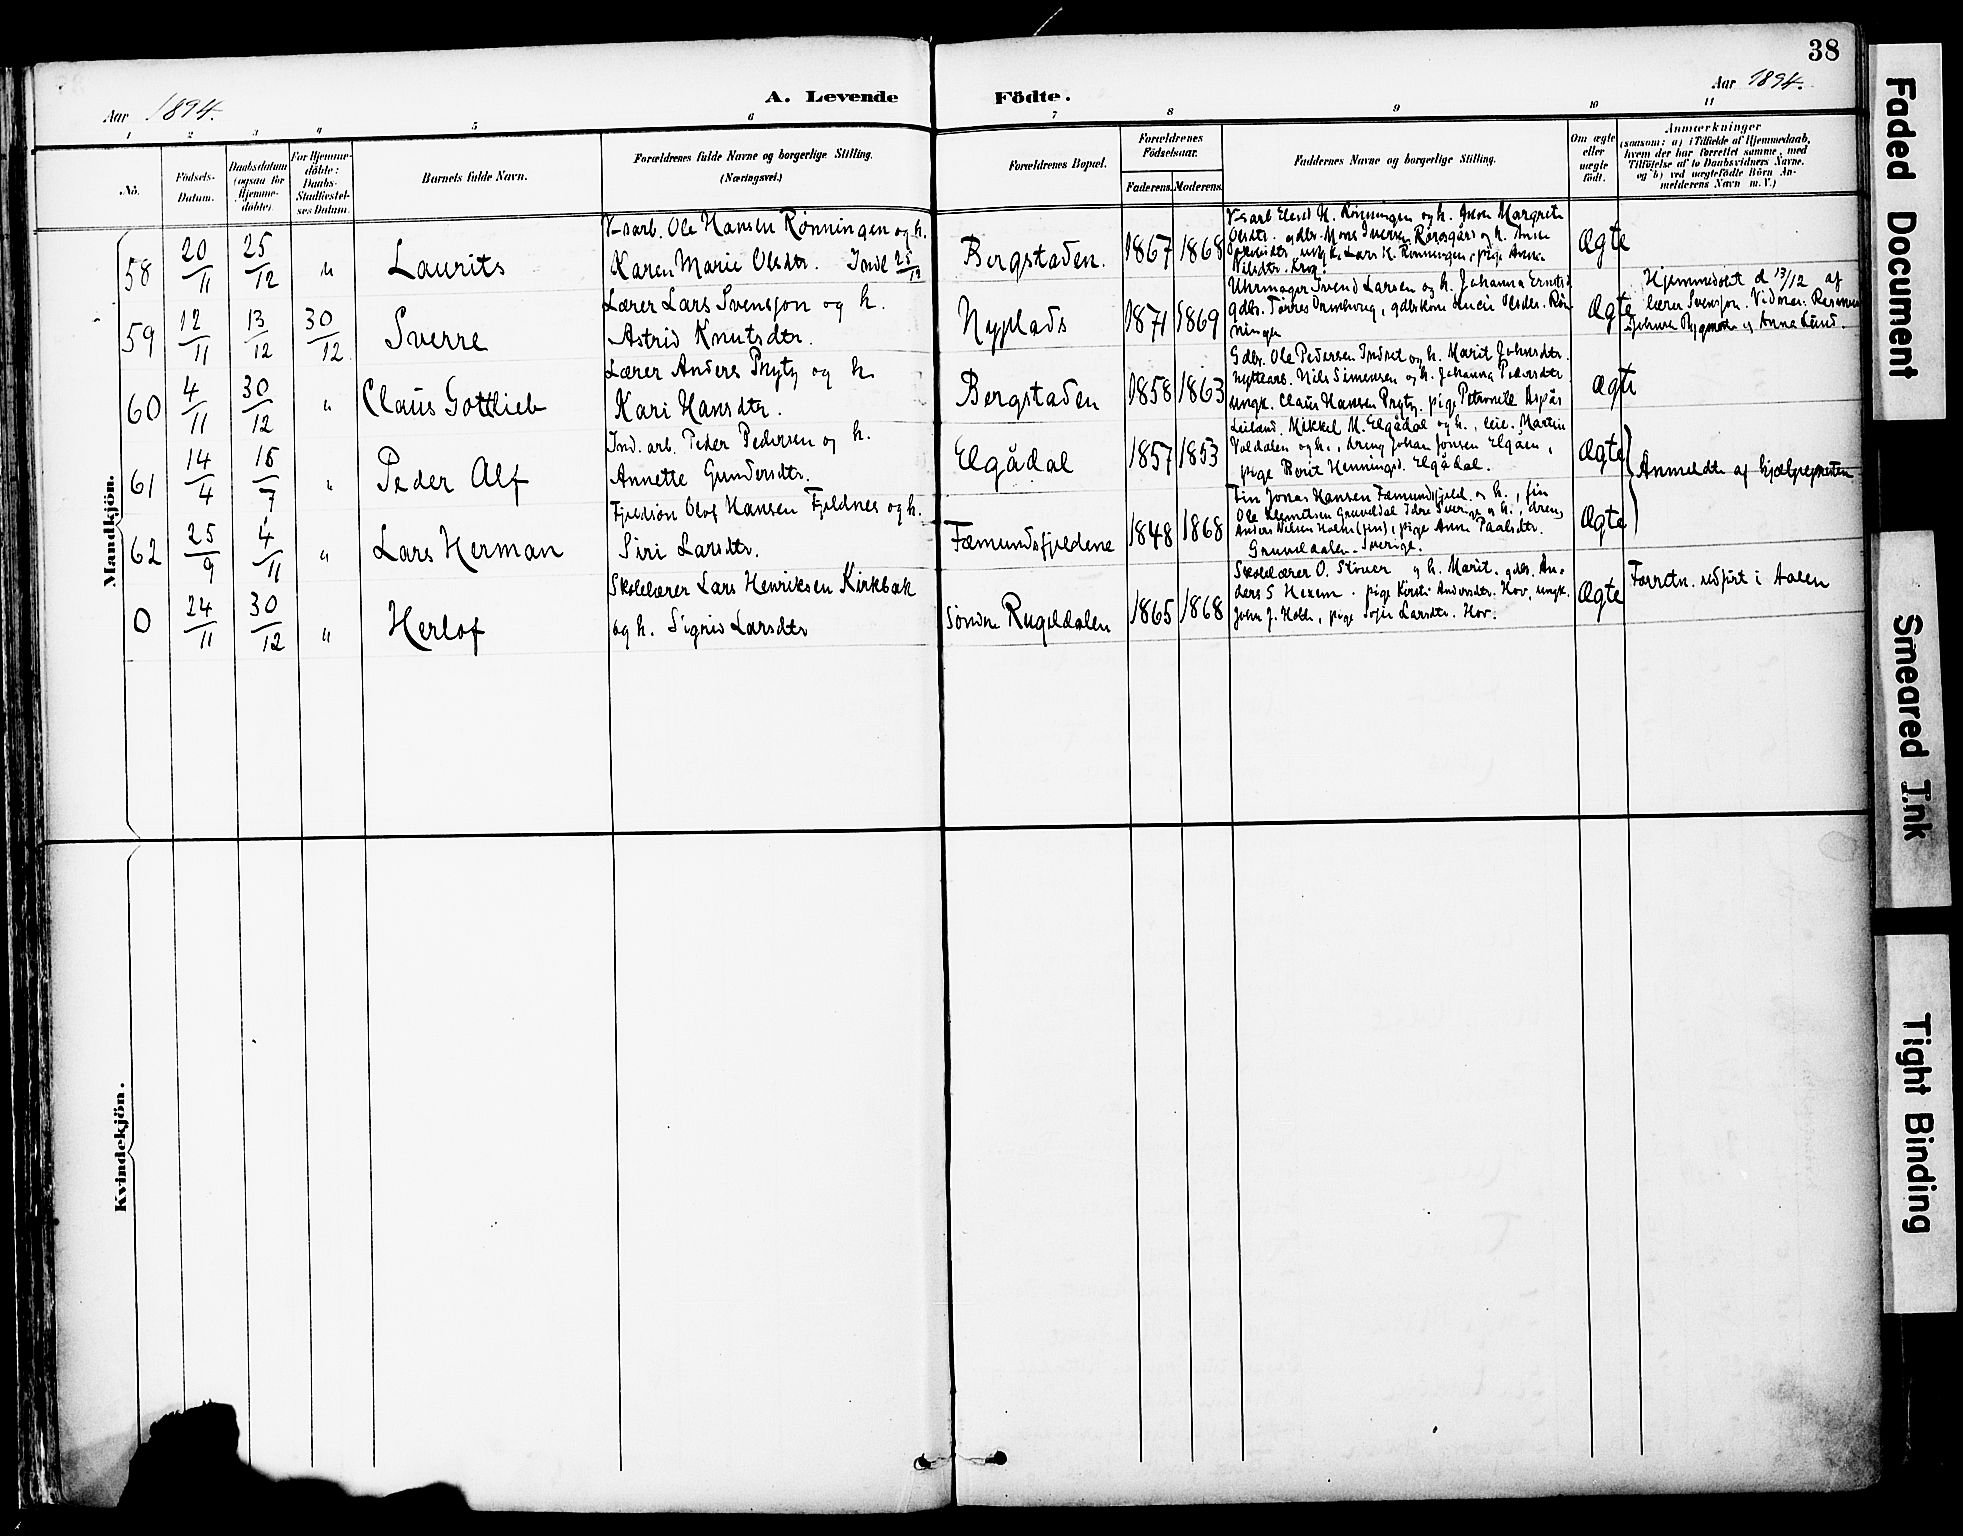 38
Aar 1894.
A. Levende Födte.
Aar 1894.
1 2 3 4 5 6 7 8 9 10 11
No.
Födsels-Datum.
Daabsdatum (ogsaa for Hjemme-döbte).
For Hjemme-döbte: Daabs-Stadfæstel-ses Datum.
Barnets fulde Navn.
Forældrenes fulde Navne og borgerlige Stilling.
(Næringsvei.)
Forældrenes Bopæl.
Forældrenes Födselsaar.
Faderens. Moderens.
Faddernes Navne og borgerlige Stilling.
Om ægte eller uægte födt.
Anmærkninger
(saasom: a) i Tilfælde af Hjemmedaab,
hvem der har forrettet samme, med
Tilföielse af to Daabsvidners Navne.
og b) ved uægtefödte Börn An-
melderens Navn m. V.)
Mandkjön.
58 20/11 25/12 " Laurits
arb. Ole Hansen Rønningen og h.
Karen Marie Olsdtr. Indl 25/12
Bergstaden. 1867 1868
arb H. Rønningen og h. Margrete
Olsdtr. gdbr. Mons Iversen Rørosgård og h. Anne
Lars H. Rønningen, pige Anne
Nilsdtr. Krog.
Ægte
59 12/11 13/12 30/12 Sverre
Lærer Lars Svensson og h.
Astrid Knutsdtr.
Nyplads 1871 1869
Uhrmager Svend Larsen og h. Johanna Ernstsd
gdbr. Tørres , gdbrkone Lucie Olsdtr. Røn
ningen
Ægte
Hjemmedøbt d 13/12 af
lærer Svensson. Vidner.
og Anna Lund.
60 4/11 30/12 " Claus Gottlieb
Lærer Anders Prytz og h.
Kari Hansdtr.
Bergstaden 1858 1863
Gdbr. Ole Pedersen Indset og h. Marit Johnsdtr.
hyttearb. Nils Simensen og h. Johanna Pedersdtr
ungk. Claus Hansen Prytz. pige Petronelle Aspås
Ægte
61 14/4 15/7 " Peder Alf
Ind. arb. Peder Pedersen og h.
Annette Gundersdtr.
Elgådal 1857 1853
Leiland. Mikkel M. Elgådal og h., leil. Martin
Valdalen og h., dreng Johan Jonsen Elgåen,
pige Berit Hennings. Elgådal.
Ægte
Anmeldt af hjælpepresten
62 25/9 4/11 " Lars Herman
Fjeldfin Olof Hansen Fjeldnes og h.
Siri Larsdtr.
Fæmundsfjeldene 1848 1868
Fin Jonas Hansen Fæmundsfjeld. og h., fin
Ole Klemetsen Gruveldal Idre Sverige og h., dreng
Anders Nilsen Holm (fin), pige Anne Paalsdtr.
Gruveldalen. Sverige.
Ægte
0 24/11 30/12 " Herlof
Skolelærer Lars Henriksen Kirkbak
og h. Sigrid Larsdtr
Søndre Rugeldalen 1865 1868
Skolelærer O. Støuer og h. Marit. gdbr. An-
ders S Hexem. pige Kirsti Andersdtr. Hov, ungk.
John J. Holde, pige Sofie Larsdtr. Hov.
Ægte
Forretn. udført i Aalen
Kvindekjön.
Faded Document
Smeared Ink
Tight Binding